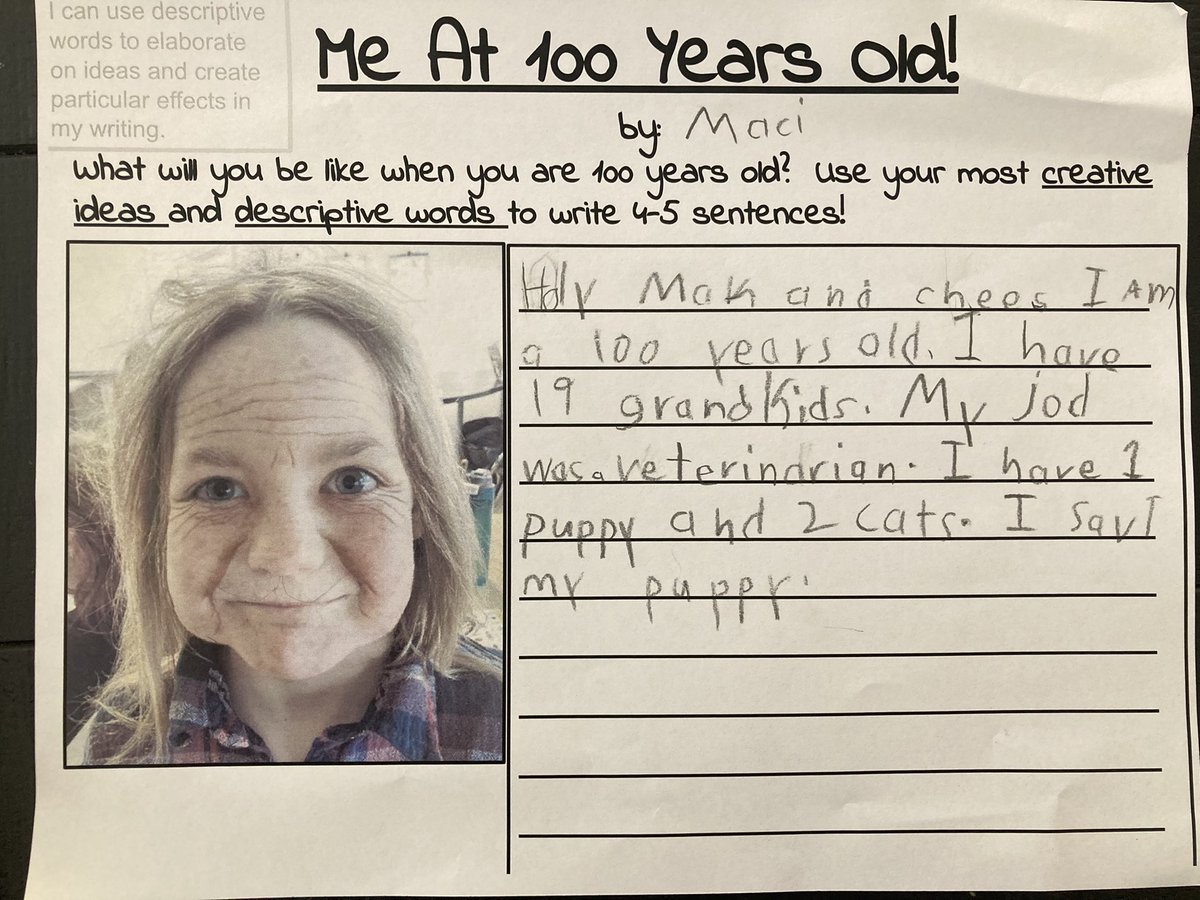 I can use descriptive
words to elaborate
on ideas and create
particular effects in
my writing.
Me At 100 Years Old!
by: Maci
What will you be like when you are 100 years old? Use your most creative
ideas and descriptive words to write 4-5 sentences!
Holy Mak and chees I Am
a 100 years old. I have
19 grandkids. My jod
was a veterindrian. I have 1
puppy and 2 cats. I
my puppy.